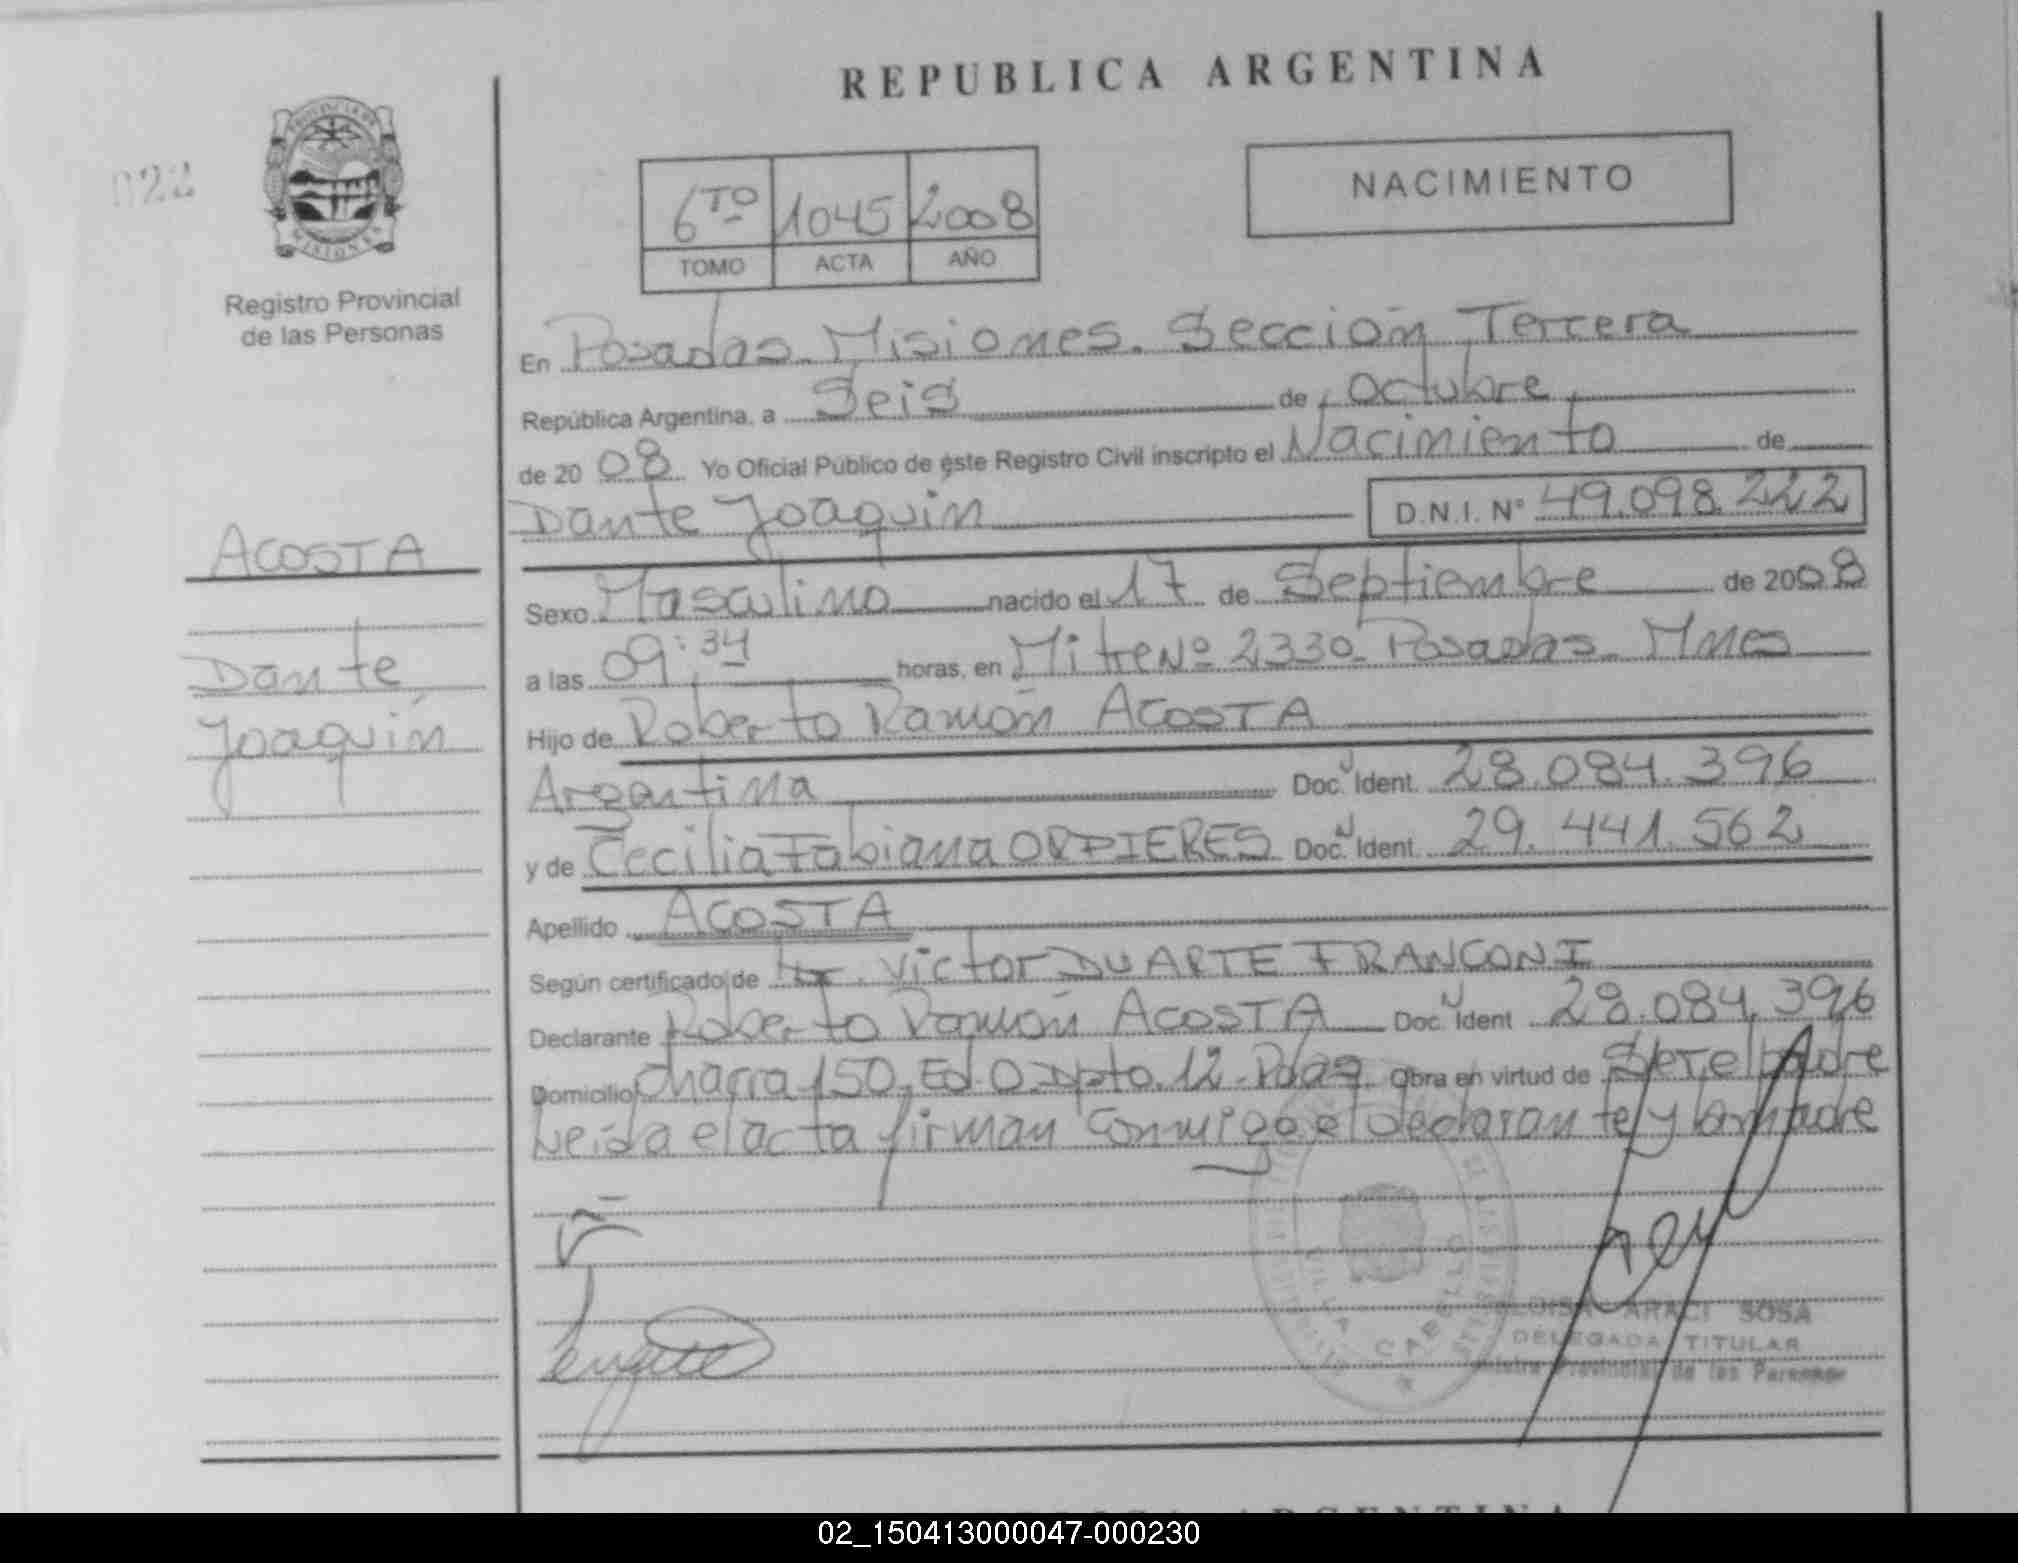 REPUBLICA ARGENTINA
PROVINCIA DE
MISIONES
022
Registro Provincial
de las Personas
6TO 1045 2008
TOMO ACTA AÑO
NACIMIENTO
En Posadas. Misiones. Sección Tercera
República Argentina, a Seis de Octubre
de 2008 Yo Oficial Público de éste Registro Civil inscripto el Nacimiento de
Dante Joaquin D.N.I. Nº 49.098.222
ACOSTA
Dante
Joaquín
Sexo Masculino nacido el 17 de Septiembre de 2008
a las 09:34 horas, en Mitre Nº 2330 Posadas. Mnes
Hijo de Roberto Ramón ACOSTA
Argentina Doc. Ident. 28.084.396
y de Cecilia Fabiana ORDIERES Doc. Ident. 29.441.562
Apellido ACOSTA
Según certificado de Victor DUARTE FRANCONI
Declarante Roberto Ramón ACOSTA Doc. Ident 28.084.396
Domicilio Chacra 150. Ed. O Dpto. 12. Pdas Obra en virtud de Ser el padre
Leída el acta firman conmigo el declarante y la madre
VILLA CABELLO
ELOISA ARACI SOSA
DELEGADA TITULAR
Registro Provincial de las Personas
02_150413000047-000230